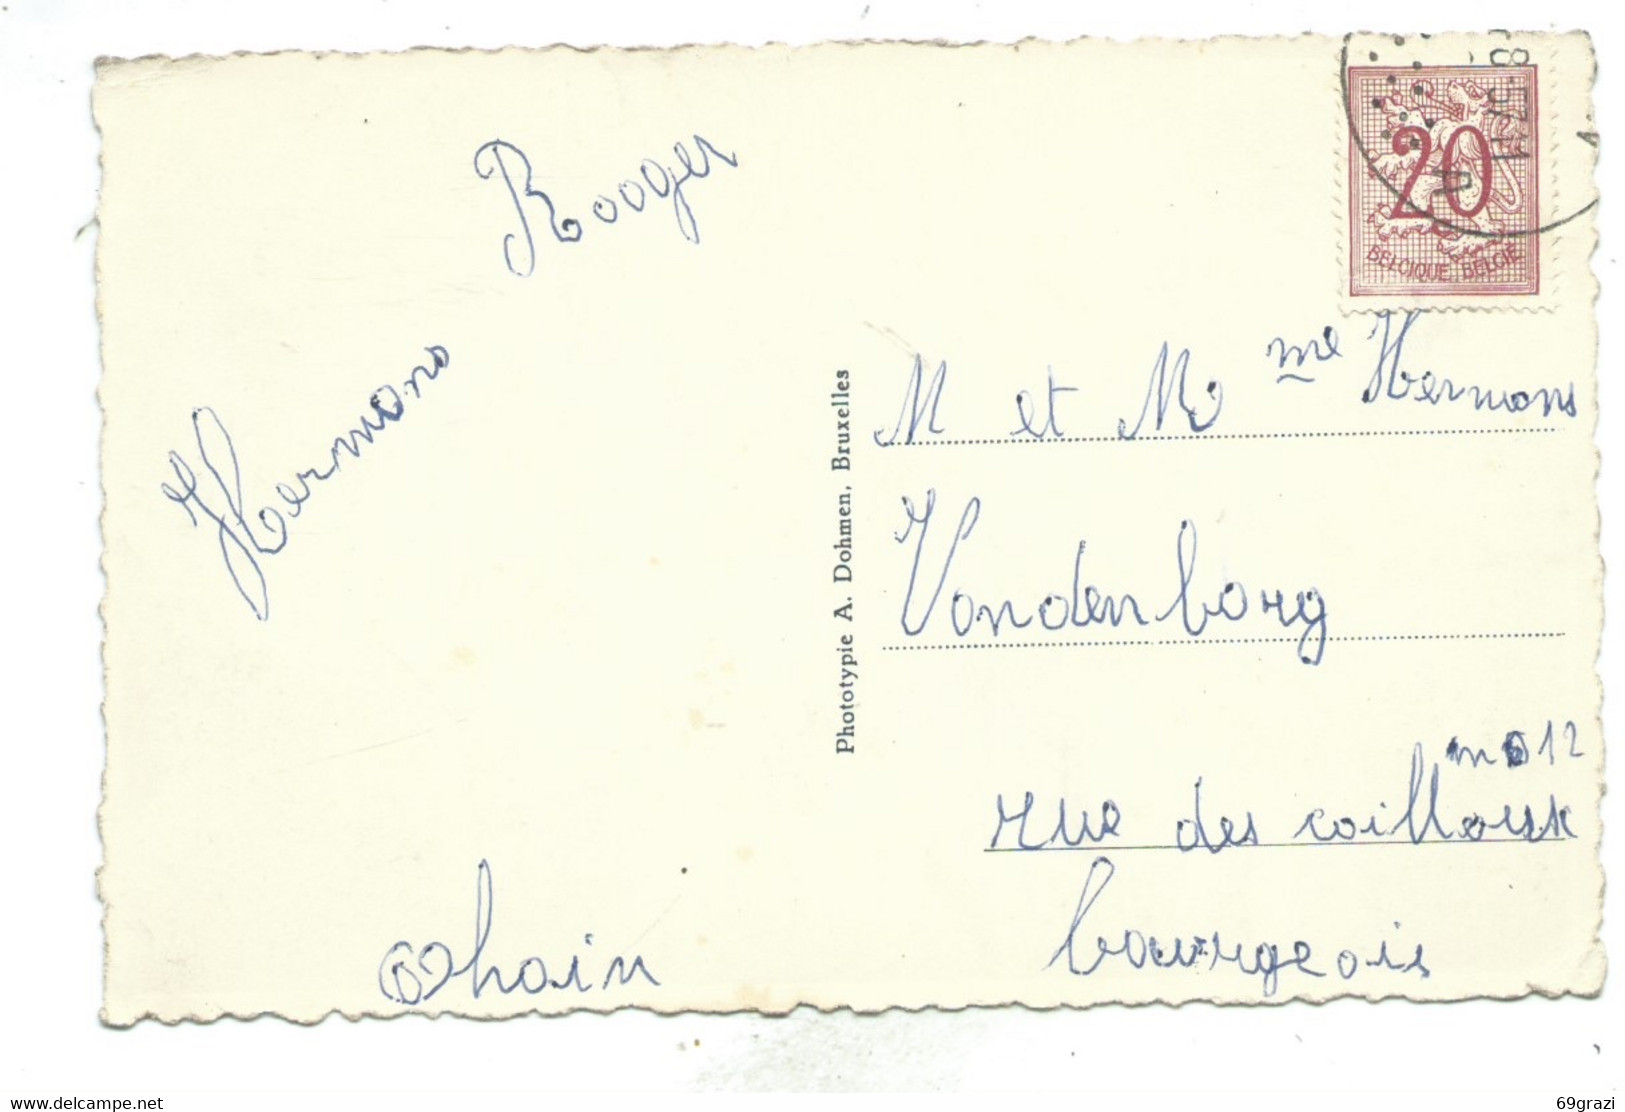 Rooger
Hermans
Ohain
Phototypie A. Dohmen, Bruxelles
20
BELGIQUE BELGIË
M et Mme Hermans
Vandenborg
no 12
rue des cailloux
bourgeois
www.delcampe.net
69grazi